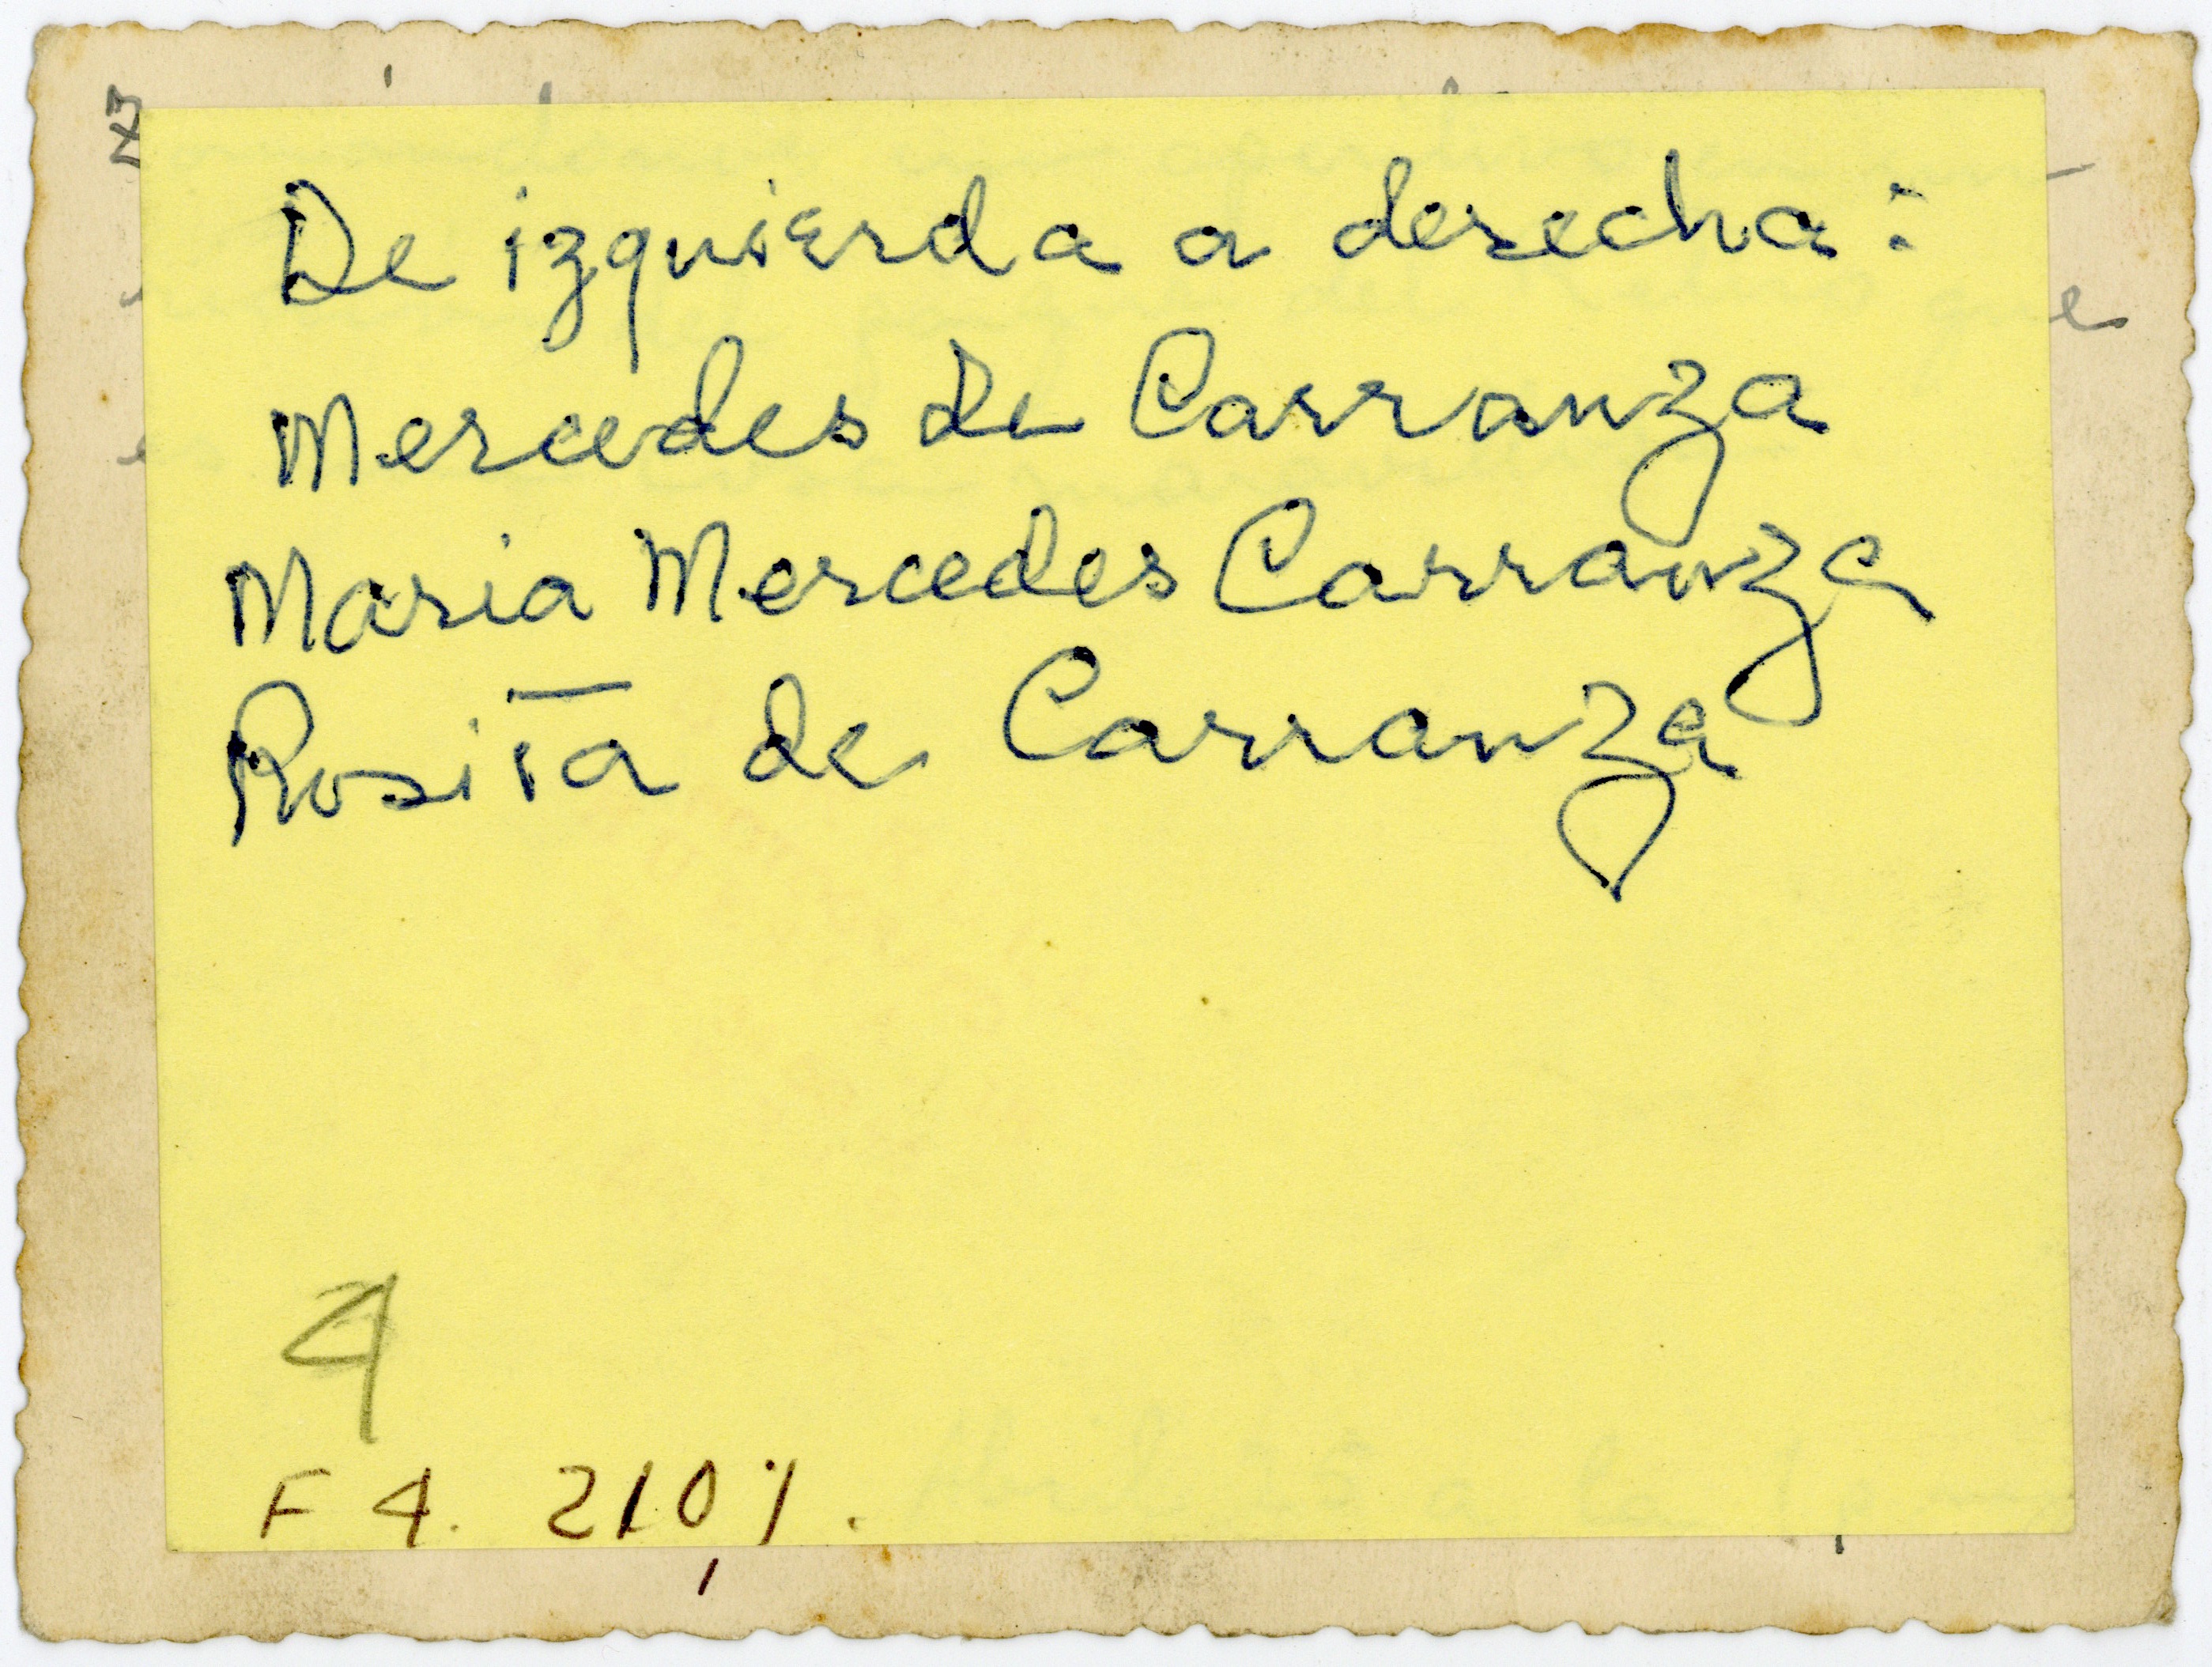 De izquierda a derecha:
Mercedes de Carranza
Maria Mercedes Carranza
Rosita de Carranza
4
F 4. 2101.